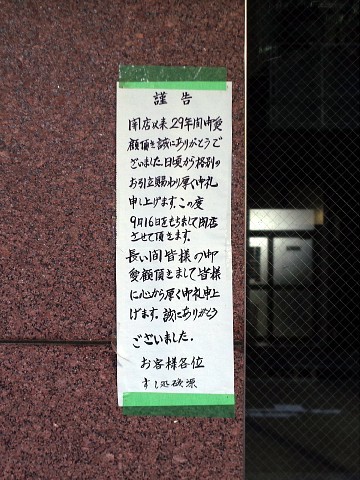 謹告
開店以来29年間御愛
顧頂き誠にありがとうご
ざいました。日頃から格別の
お引立賜わり厚く御礼
申し上げます。この度
9月16日をもちまして閉店
させて頂きます。
長い間皆様の御
愛顧頂きまして皆様
に心から厚く御礼申上
げます。誠にありがとう
ございました。
お客様各位
すし処磯源